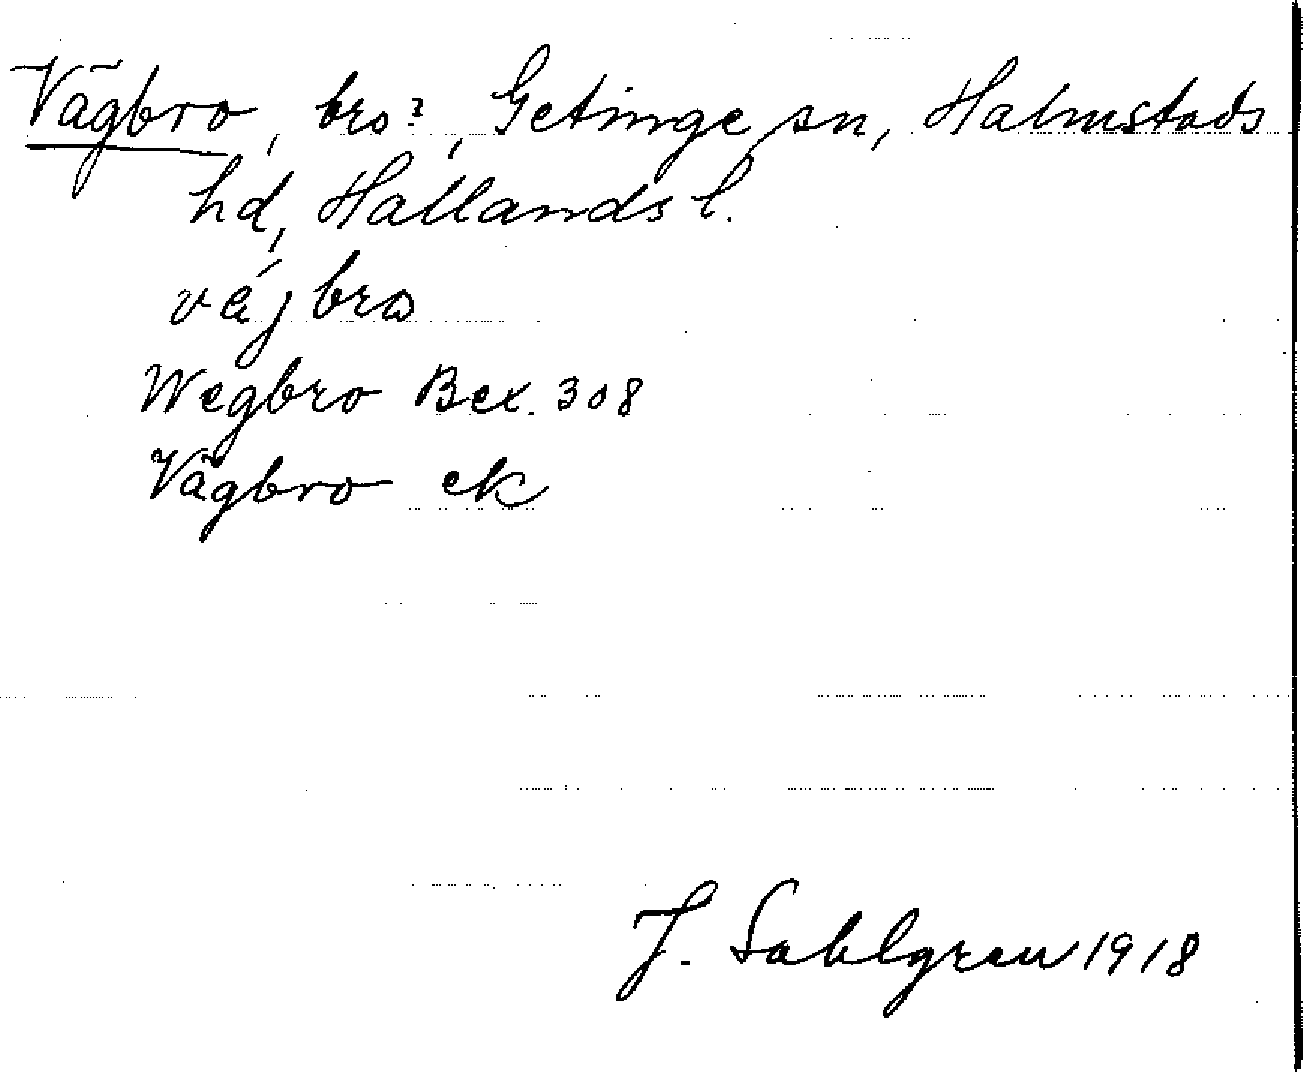 Vägbro, bro?, Getinge sn, Halmstads
hd, Hallands l.
vǽjbro
Wegbro Bex. 308
Vägbro ek
J. Sahlgren 1918